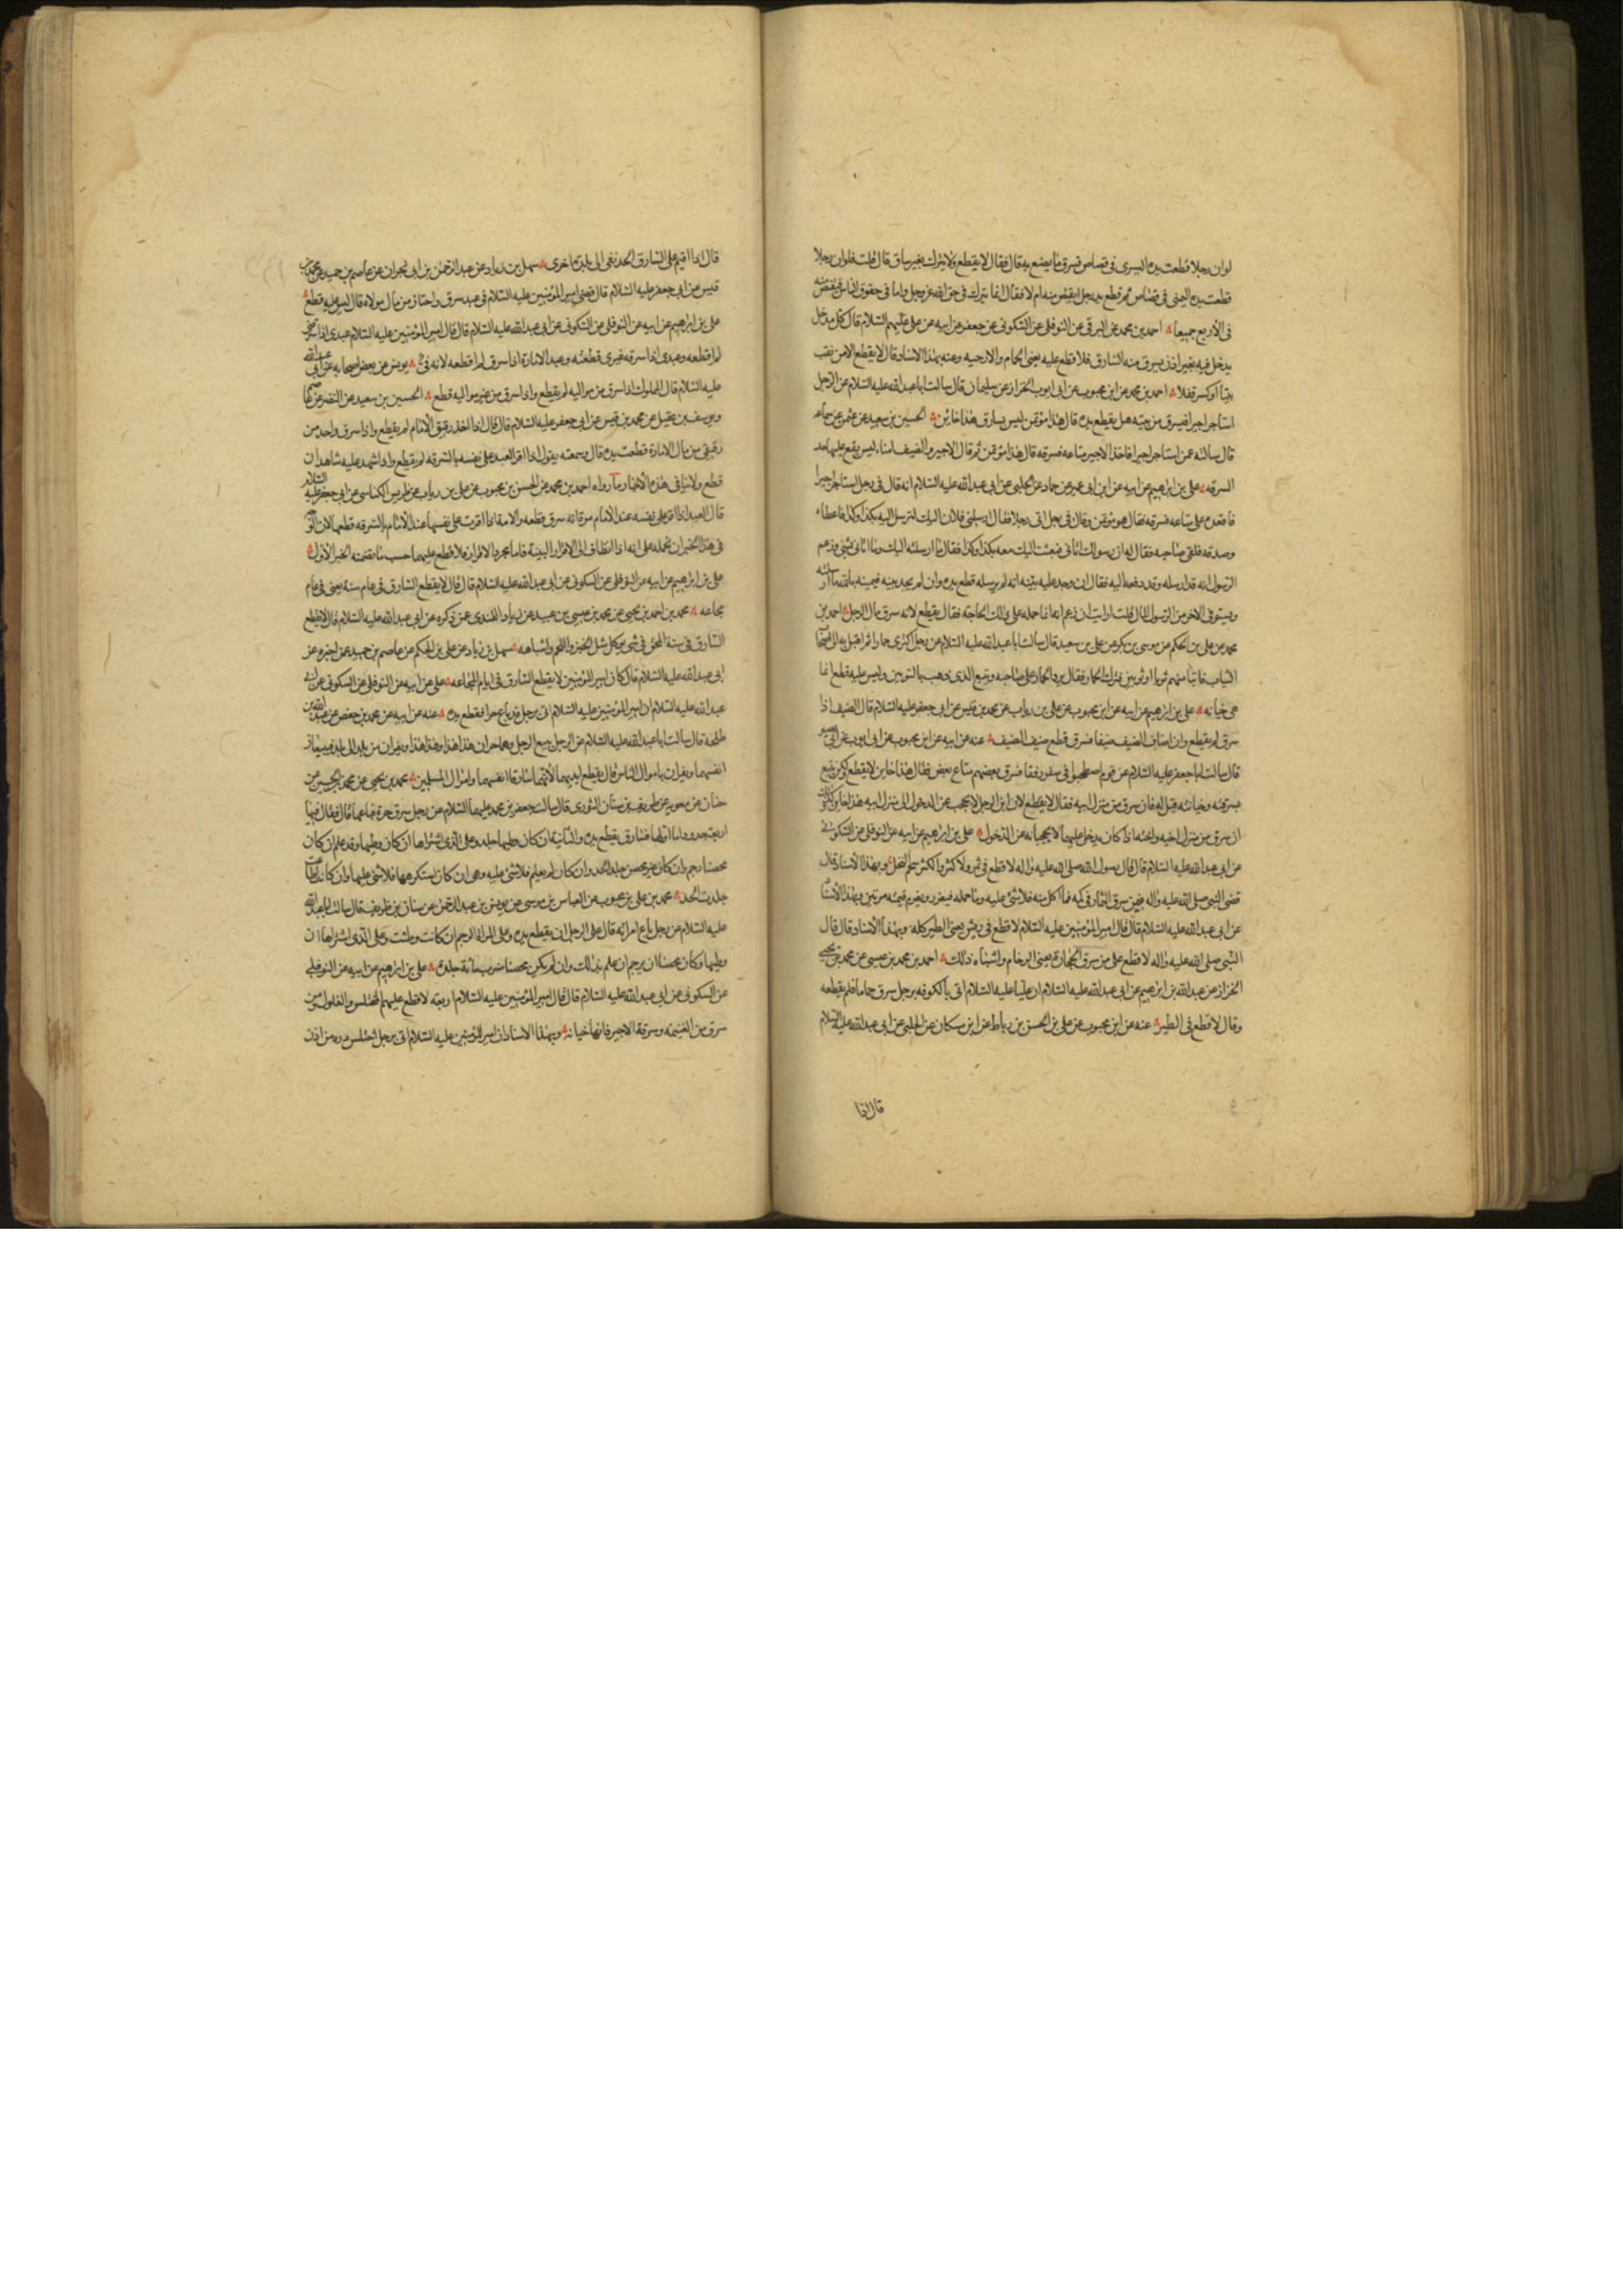 لوان رجلا قطعت يده اليسرى فى قصاص فسرق ما يصنع به قال فقال لا يقطع ولا يترك بغير ساق قال قلت فلوان رجلا
قطعت يده اليمنى فى قصاص ثم قطع يد رجل ايقتص منه ام لا فقال انما يترك فى حق الله عز وجل واما فى حقوق الناس فيقتص منه
فى الأربع جميعا احمد بن محمد عن البرقى عن النوفلى عن السكونى عن جعفر عن ابيه عن على عليهم السلام قال كل مدخل
يدخل فيه بغير اذن يسرق منه السارق فلا قطع عليه يعنى الحمام والارحيه وعنه بهذا الاسناد قال لا يقطع الا من نقب
بيتا او كسر قفلا احمد بن محمد عن ابن محبوب عن ابى ايوب الخزاز عن سليمان قال سالت ابا عبد الله عليه السلام عن الرجل
استاجر اجيرا فسرق من بيته هل يقطع يده قال هذا مؤتمن ليس بسارق هذا خائن الحسين بن سعيد عن عثمن عن سماعه
قال سالته عمن استاجر اجيرا فاخذ الاجير متاعه فسرقه قال هذا مؤتمن ثم قال الاجير والضيف امناء ليس يقع عليهما حد
السرقه على بن ابرهيم عن ابيه عن ابن ابى عمير عن حماد عن الحلبى عن ابى عبد الله عليه السلام انه قال فى رجل استاجر اجيرا
فاقعده على متاعه فسرقه فقال هو مؤتمن وقال فى رجل اتى رجلا فقال ارسلنى فلان اليك لترسل اليه بكذا وكذا فاعطاه
وصدقه فلقى صاحبه فقال له ان رسولك اتانى فبعثت اليك معه بكذا وكذا فقال ما ارسلته اليك وما اتانى بشئ وزعم
الرسول انه قد ارسله وقد دفعه اليه فقال ان وجد عليه بينه انه لم يرسله قطع يده وان لم يجد بينه فيمينه بالله ما ارسلته
ويستوفى الاخر من الرسول المال قلت ارايت ان زعم انما حمله على ذلك الحاجه فقال يقطع لانه سرق مال الرجل احمد بن
محمد عن على بن الحكم عن موسى بن بكر عن على بن سعيد قال سالت ابا عبد الله عليه السلام عن رجل اكترى حمارا ثم اقبل به الى اصحاب
الثياب فابتاع منهم ثوبا او ثوبين فترك الحمار فقال يرد الحمار على صاحبه ويتبع الذى ذهب بالثوبين وليس عليه قطع انما
هى خيانه على بن ابرهيم عن ابيه عن ابن محبوب عن على بن رياب عن محمد بن قيس عن ابى جعفر عليه السلام قال الضيف اذا
سرق لم يقطع وان اضاف الضيف ضيفا فسرق قطع ضيف الضيف عنه عن ابيه عن ابن محبوب عن ابى ايوب عن ابى بصير
قال سالت ابا جعفر عليه السلام عن قوم اصطحبوا فى سفر رفقا فسرق بعضهم متاع بعض فقال هذا خاين لا يقطع ولكن يتبع
بسرقته وخيانته قيل له فان سرق من منزل ابيه فقال لا يقطع لان ابن الرجل لا يحجب عن الدخول الى منزل ابيه هذا خاين وكذلك
ان سرق من منزل اخيه واخته اذا كان يدخل عليهما لا يحجبانه عن الدخول على بن ابرهيم عن ابيه عن النوفلى عن السكونى
عن ابى عبد الله عليه السلام قال قال رسول الله صلى الله عليه واله لا قطع فى ثمر ولا كثر والكثر شحم النخل وبهذا الاسناد قال
قضى النبى صلى الله عليه واله فيمن سرق الثمار فى كمه فما اكل منه فلا شئ عليه وما حمله فيعزر ويغرم قيمته مرتين وبهذا الاسناد
عن ابى عبد الله عليه السلام قال قال امير المؤمنين عليه السلام لا قطع فى ريش يعنى الطير كله وبهذا الاسناد قال قال
النبى صلى الله عليه واله لا قطع على من سرق الحجارة يعنى الرخام واشباه ذلك احمد بن محمد بن عيسى عن محمد بن يحيى
الخزاز عن عبد الله بن ابرهيم عن ابى عبد الله عليه السلام ان عليا عليه السلام اتى بالكوفه برجل سرق حماما فلم يقطعه
وقال لا قطع فى الطير عنه عن ابن محبوب عن على بن الحسن بن رباط عن ابن مسكان عن الحلبى عن ابى عبد الله عليه السلام
قال اذا
قال اذا اقيم على السارق الحد نفى الى بلدة اخرى سهل بن زياد عن عبد الرحمن بن ابى نجران عن عاصم بن حميد عن محمد بن
قيس عن ابى جعفر عليه السلام قال قضى امير المؤمنين عليه السلام فى عبد سرق واختان من مال مولاه قال ليس عليه قطع
على بن ابرهيم عن ابيه عن النوفلى عن السكونى عن ابى عبد الله عليه السلام قال قال امير المؤمنين عليه السلام عبدى اذا سرقنى
لم اقطعه وعبدى اذا سرق غيرى قطعته وعبد الامارة اذا سرق لم اقطعه لانه فئ يونس عن بعض اصحابه عن ابى عبد الله
عليه السلام قال المملوك اذا سرق من مواليه لم يقطع واذا سرق من غير مواليه قطع الحسين بن سعيد عن النضر عن عاصم
ويوسف بن عقيل عن محمد بن قيس عن ابى جعفر عليه السلام قال قال اذا اخذ رقيق الامام لم يقطع واذا سرق واحد من
رقيقى من مال الامارة قطعت يده قال وسمعته يقول اذا اقر العبد على نفسه بالسرقه لم يقطع واذا شهد عليه شاهدان
قطع ولا ينافى هذه الاخبار ما رواه احمد بن محمد عن الحسن بن محبوب عن على بن رياب عن ضريس الكناسى عن ابى جعفر عليه السلام
قال العبد اذا اقر على نفسه عند الامام مرة انه سرق قطعه والامة اذا اقرت على نفسها عند الامام بالسرقه قطعها لان الوجه
فى هذا الخبر ان نحمله على انه اذا انضاف الى الاقرار البينة فاما مجرد الاقرار فلا قطع عليهما حسب ما تضمنه الخبر الاول
على بن ابرهيم عن ابيه عن النوفلى عن السكونى عن ابى عبد الله عليه السلام قال قال لا يقطع السارق فى عام سنه يعنى فى عام
مجاعه محمد بن احمد بن يحيى عن محمد بن عيسى بن عبيد عن زياد القندى عمن ذكره عن ابى عبد الله عليه السلام قال لا يقطع
السارق فى سنة المحق فى شئ يؤكل مثل الخبز واللحم واشباهه سهل بن زياد عن على بن الحكم عن عاصم بن حميد عمن اخبره عن
ابى عبد الله عليه السلام قال كان امير المؤمنين لا يقطع السارق فى ايام المجاعه على عن ابيه عن النوفلى عن السكونى عن ابى
عبد الله عليه السلام ان امير المؤمنين عليه السلام اتى برجل قد باع حرا فقطع يده عنه عن ابيه عن محمد بن حفص عن عبد الله بن
طلحة قال سالت ابا عبد الله عليه السلام عن الرجل يبيع الرجل وهما حران هذا هذا وهذا هذا ويفران من بلد الى بلد فيبيعان
انفسهما ويفران باموال الناس قال يقطع ايديهما لأنهما سارقا انفسهما واموال المسلمين محمد بن يحيى عن محمد بن الحسين عن
حنان عن معويه عن طريف بن سنان الثورى قال سالت جعفر بن محمد عليهما السلام عن رجل سرق حرة فباعها قال فقال فيها
اربعة حدود اما اولها فسارق يقطع يده والثانية ان كان وطيها جلد وعلى الذى اشتراها ان كان وطيها وقد علم ان كان
محصنا رجم وان كان غير محصن جلد الحد وان كان لم يعلم فلا شئ عليه وهى ان كان استكرهها فلا شئ عليها وان كانت اطاعته
جلدت الحد محمد بن على بن محبوب عن العباس بن موسى عن يونس بن عبد الرحمن عن سنان بن طريف قال سالت ابا عبد الله
عليه السلام عن رجل باع امراته قال على الرجل ان يقطع يده وعلى المراة الرجم ان كانت وطئت وعلى الذى اشتراها ان
وطيها وكان محصنا ان يرجم ان علم بذلك وان لم يكن محصنا ضرب مائة جلدة على بن ابرهيم عن ابيه عن النوفلى
عن السكونى عن ابى عبد الله عليه السلام قال قال امير المؤمنين عليه السلام اربعه لا قطع عليهم المختلس والغلول ومن
سرق من الغنيمه وسرقة الاجير فانها خيانه وبهذا الاسناد ان امير المؤمنين عليه السلام اتى برجل اختلس درة من اذن